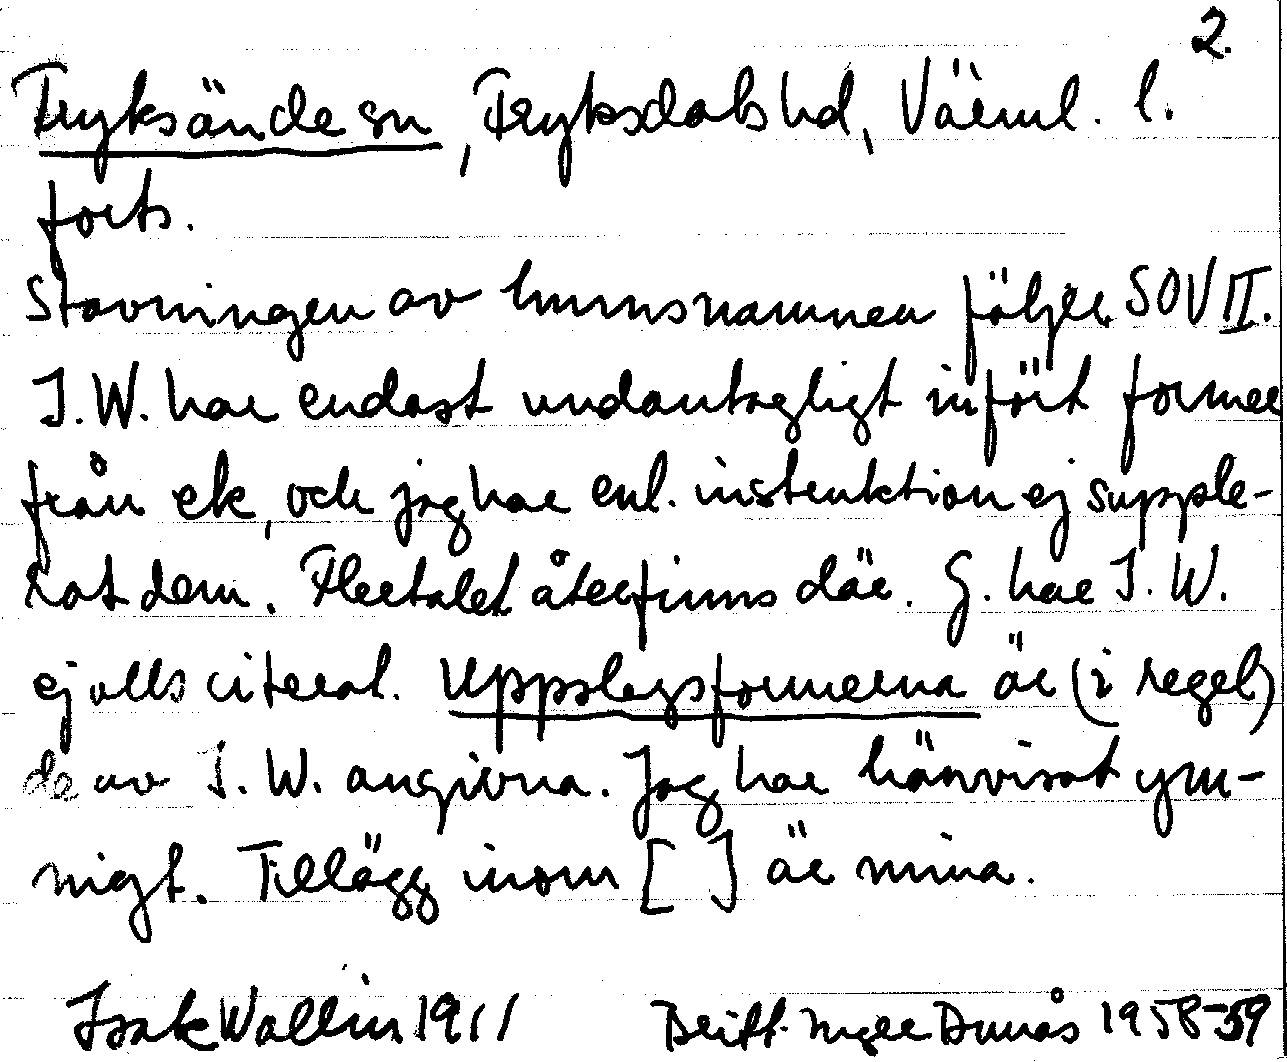 2.
Fryksände sn, Fryksdals hd, Värml. l.
forts.
Stavningen av hemmsnamnen följer SOV II.
I.W. har endast undantagligt infört former
från ek, och jag har enl. instruktion ej supple-
rat dem. Flertalet återfinns där. G. har I.W.
ej alls citerat. Uppslagsformerna är (i regel)
de av I.W. angivna. Jag har hänvisat ym-
nigt. Tillägg inom [ ] är mina.
Isak Wallin 1911 Britt-Inger Dunås 1958-59